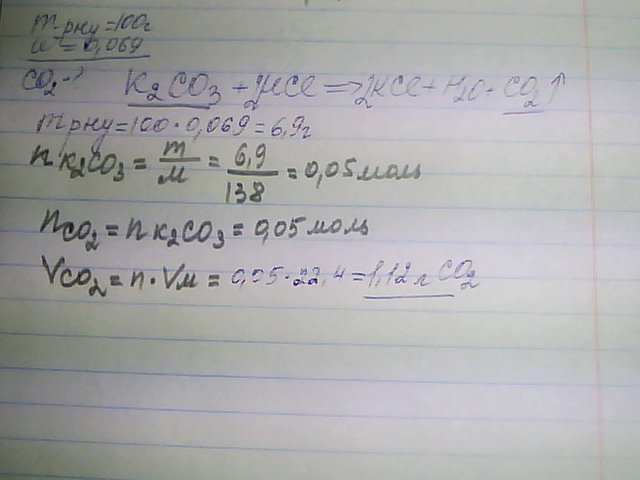 m рну = 100г
w = 0,069
CO₂ - ?
K₂CO₃ + 2HCl => 2KCl + H₂O + CO₂↑
m рну = 100 · 0,069 = 6,9г
n K₂CO₃ = m/M = 6,9/138 = 0,05 моль
n CO₂ = n K₂CO₃ = 0,05 моль
V CO₂ = n · Vм = 0,05 · 22,4 = 1,12 л CO₂